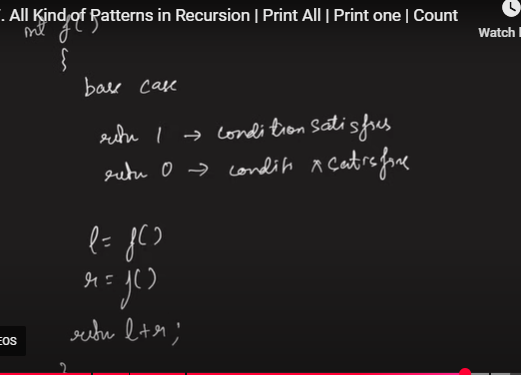 . All Kind of Patterns in Recursion | Print All | Print one | Count
Watch
int f()
{
base case
return 1 → condition satisfies
return 0 → condith × satisfies
l = f()
r = f()
return l+r;
}
EOS